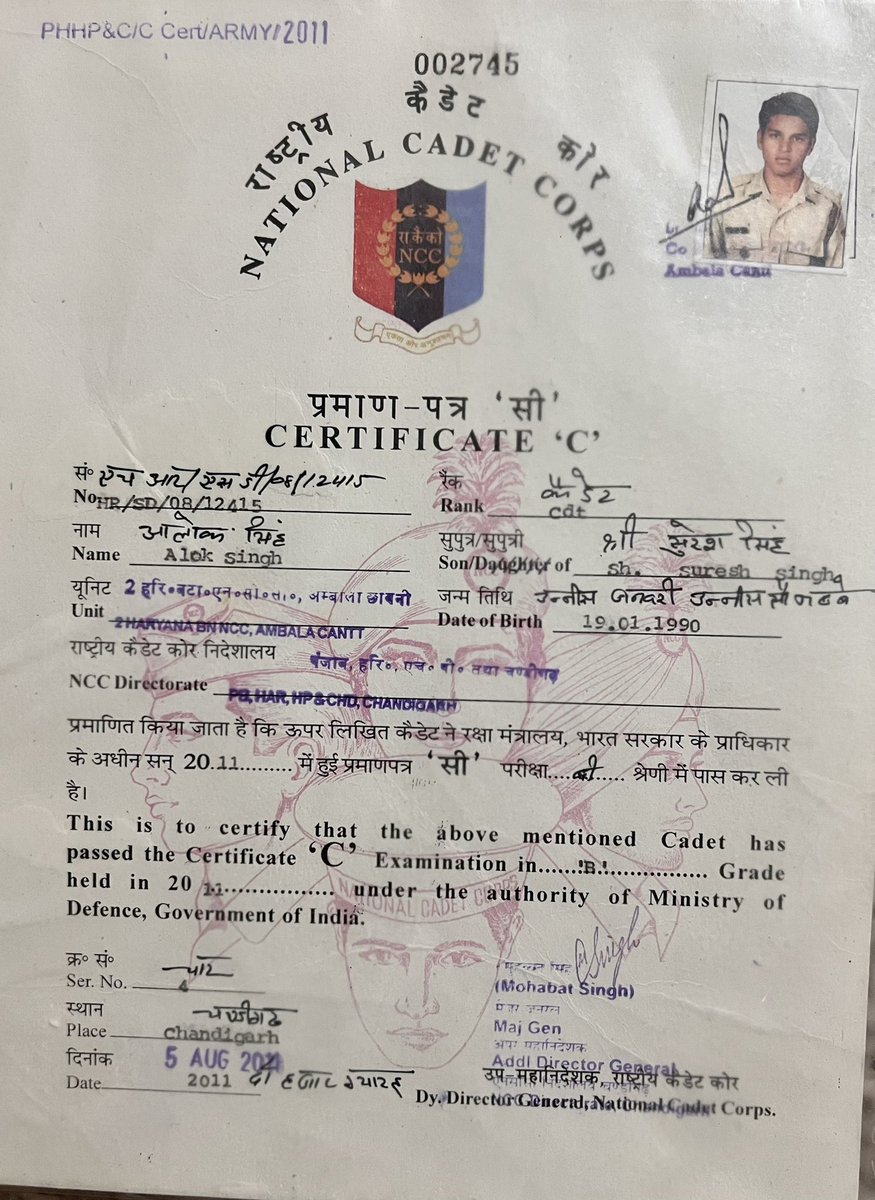 PHHP&C/C Cert/ARMY/2011
002745
राष्ट्रीय कैडेट कोर
NATIONAL CADET CORPS
रा कै को
NCC
एकता और अनुशासन
Co
Ambala Cantt
प्रमाण-पत्र ‘सी’
CERTIFICATE ‘C’
सं० एच आर/एस डी/08/12415
No. HR/SD/08/12415
रैंक कैडेट
Rank Cdt
नाम आलोक सिंह
Name Alok singh
सुपुत्र/सुपुत्री श्री सुरेश सिंह
Son/Daughter of sh. suresh singh
यूनिट 2 हरि०बटा०एन०सी०सी०, अम्बाला छावनी
Unit 2 HARYANA BN NCC, AMBALA CANTT
जन्म तिथि उन्नीस जनवरी उन्नीस सौ नब्बे
Date of Birth 19.01.1990
राष्ट्रीय कैडेट कोर निदेशालय पंजाब, हरि०, एच० पी० तथा चण्डीगढ़
NCC Directorate PB, HAR, HP & CHD, CHANDIGARH
प्रमाणित किया जाता है कि ऊपर लिखित कैडेट ने रक्षा मंत्रालय, भारत सरकार के प्राधिकार
के अधीन सन् 20.11......... में हुई प्रमाणपत्र ‘सी’ परीक्षा....बी.... श्रेणी में पास कर ली
है।
This is to certify that the above mentioned Cadet has
passed the Certificate ‘C’ Examination in......'B'................. Grade
held in 20 11................ under the authority of Ministry of
Defence, Government of India.
NATIONAL CADET CORPS
क्र० सं० चार
Ser. No. 4
स्थान चण्डीगढ़
Place Chandigarh
दिनांक 5 AUG 2011
Date 2011 दो हजार ग्यारह
Singh
(Mohabat Singh)
मेजर जनरल
Maj Gen
अपर महानिदेशक
Addl Director General
उप-महानिदेशक, राष्ट्रीय कैडेट कोर
Dy. Director General, National Cadet Corps.